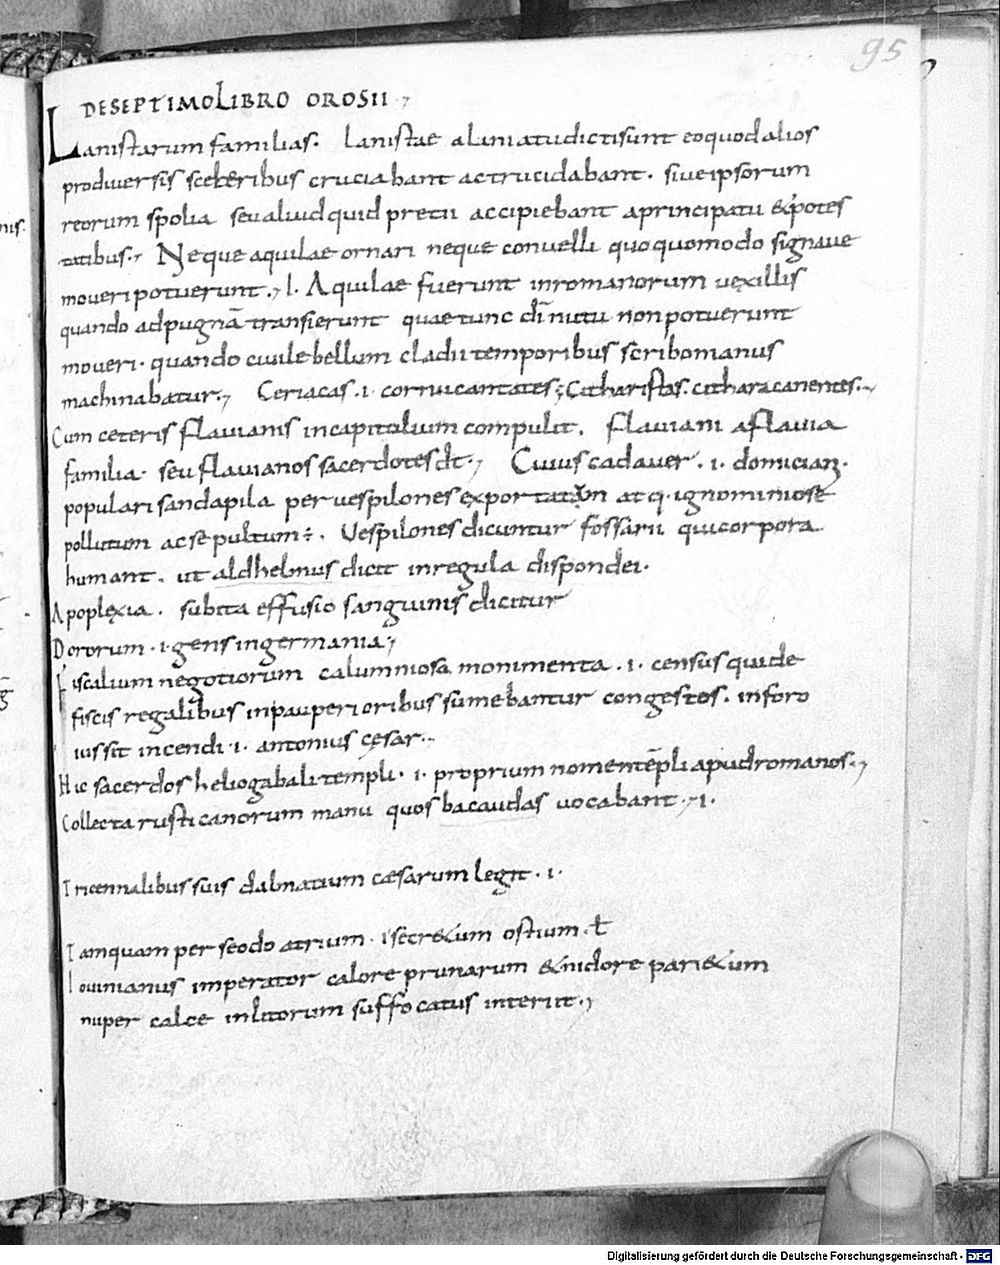 95
DE SEPTIMO LIBRO OROSII
Lanistarum familias. Lanistae a laniatu dicti sunt eo quod alios
pro diversis sceleribus cruciabant ac trucidabant. sive ipsorum
reorum spolia seu aliud quid pretii accipiebant a principatu & potes
tatibus. Neque aquilae ornari neque convelli quoquomodo signave
moveri potuerunt. l. Aquilae fuerunt in romanorum vexillis
quando ad pugnā transierunt quae tunc dī nutu non potuerunt
moveri. quando civile bellum cladii temporibus scribonianus
machinabatur. Ceriacas .i. cornu cantates. Citharistas. cithara canentes.
Cum ceteris flavianis in capitolium compulit. flaviani a flavia
familia. seu flavianos sacerdotes dt. Cuius cadaver .i. domician.
populari sandapila per vespilones exportatum atq. ignominiose
pollutum ac sepultum. Vespilones dicuntur fossarii qui corpora
humant. ut aldhelmus dicit in regula dispondei.
Apoplexia. subita effusio sanguinis dicitur
Dororum .i. gens in germania
Fiscalium negotiorum calumniosa monimenta .i. census qui de
fiscis regalibus in pauperioribus sumebantur congestos. in foro
iussit incendi .i. antonius cęsar.
Hic sacerdos heliogabali templi .i. proprium nomen tēpli apud romanos.
Collecta rusticanorum manu quos bacaudas vocabant .i.
Tricennalibus suis dalmatium cæsarum legit .i.
Tamquam per seodo atrium .i. secr&um ostium ł
Iovinianus imperator calore prunarum & nidore pari&um
nuper calce inlitorum suffocatus interiit.
nis.
Digitalisierung gefördert durch die Deutsche Forschungsgemeinschaft - DFG